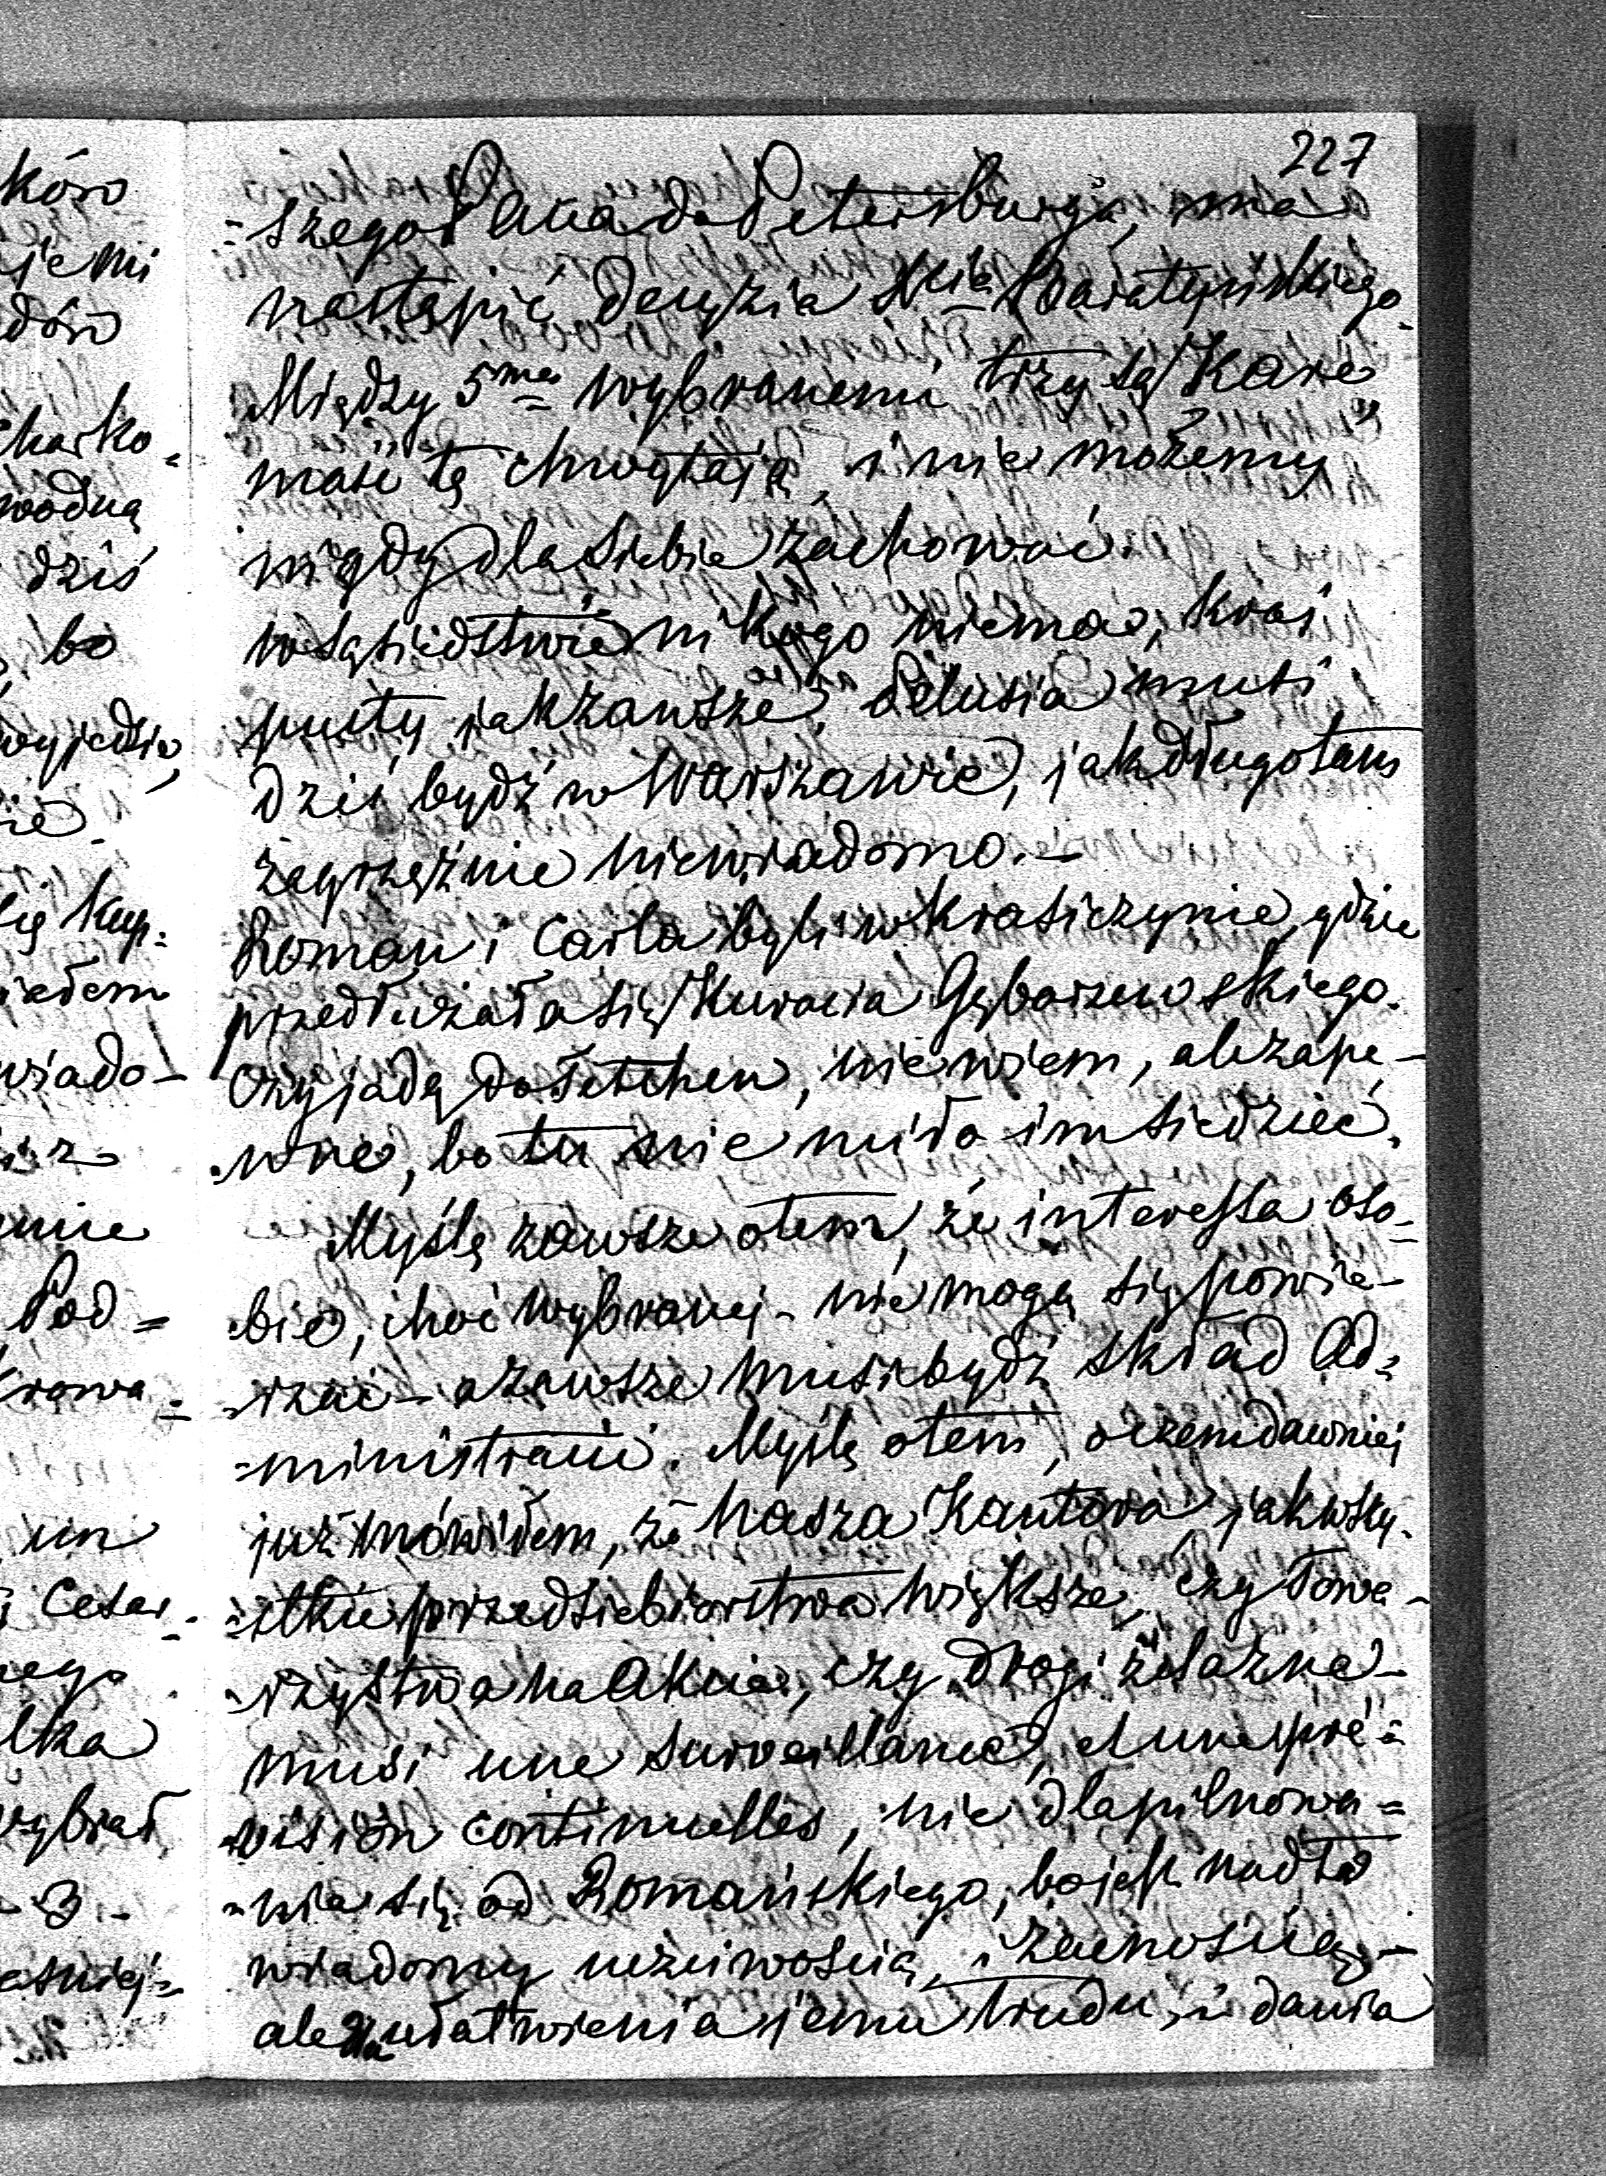 227
-szego Pana do Petersburga, ma
nastąpić decyzia Xcia Baratyńskiego.
Między 5ma wybranemi trzy są Kare
maści tę chwytają, i nie możemy
nigdy dla siebie zachować.
w sąsiedstwie nikogo niema, kraj
pusty jak zawsze, Celusia musi
dziś bydź w Warszawie, jak długo tam
zagrzęźnie niewiadomo.-
Roman i Carla byli w Krasiczynie, gdzie
przedłużała się Kuracia Gębarzewskiego.
Czy jadą do Tetchen, nie wiem, ale zape-
-wne, bo tu nie miło im siedzieć.
Myślę zawsze o tem, że interessa oso-
-bie, choć wybranej - nie mogą się powie-
-rzać - a zawsze musi bydź skład Ad=
-ministracii. Myślę o tem, o czem dawniej
już mówiłem, że Nasza Kantora, jak wszy-
-stkie przedsiebiorstwa większe, czy Towa-
-rzystwa na Akcie, czy drogi żelazne -
musi une surveillance, et une pré=
-vision continuelles, nie dla pilnowa=
-nia się od Romańskiego, bo jest nadto
wiadomy uczciwością, i zacnością -
ale dla ułatwienia jemu trudu, i dania
kóso
jemi
dów
charko=
wodną
dziś
bo
wyjedzie,
Kup=
wiado-
Pod=
un
Cesar-
nego
wybrał
- 3 -